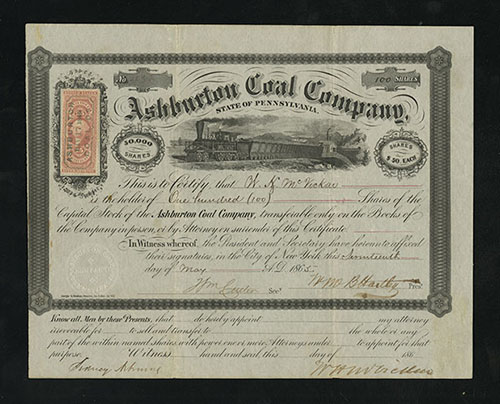 No
100 SHARES
Ashburton Coal Company,
STATE OF PENNSYLVANIA.
50,000 SHARES
SHARES $50 EACH
This is to Certify, that W. H. McVickar
is the holder of One hundred (100) Shares of the
Capital Stock of the Ashburton Coal Company, transferable only on the Books of
the Company in person, or by Attorney on surrender of this Certificate
In Witness whereof, the President and Secretary have hereunto affixed
their signatures, in the City of New York this Seventeenth
day of May A.D. 1865.
Wm Secy. Wm B Pres.
Know all Men by these Presents, that do hereby appoint my attorney
irrevocable for to sell and transfer to the whole or any
part of the within named shares with power one or more Attorneys under to appoint for that
purpose. Witness hand and seal this day of 186
Sidney